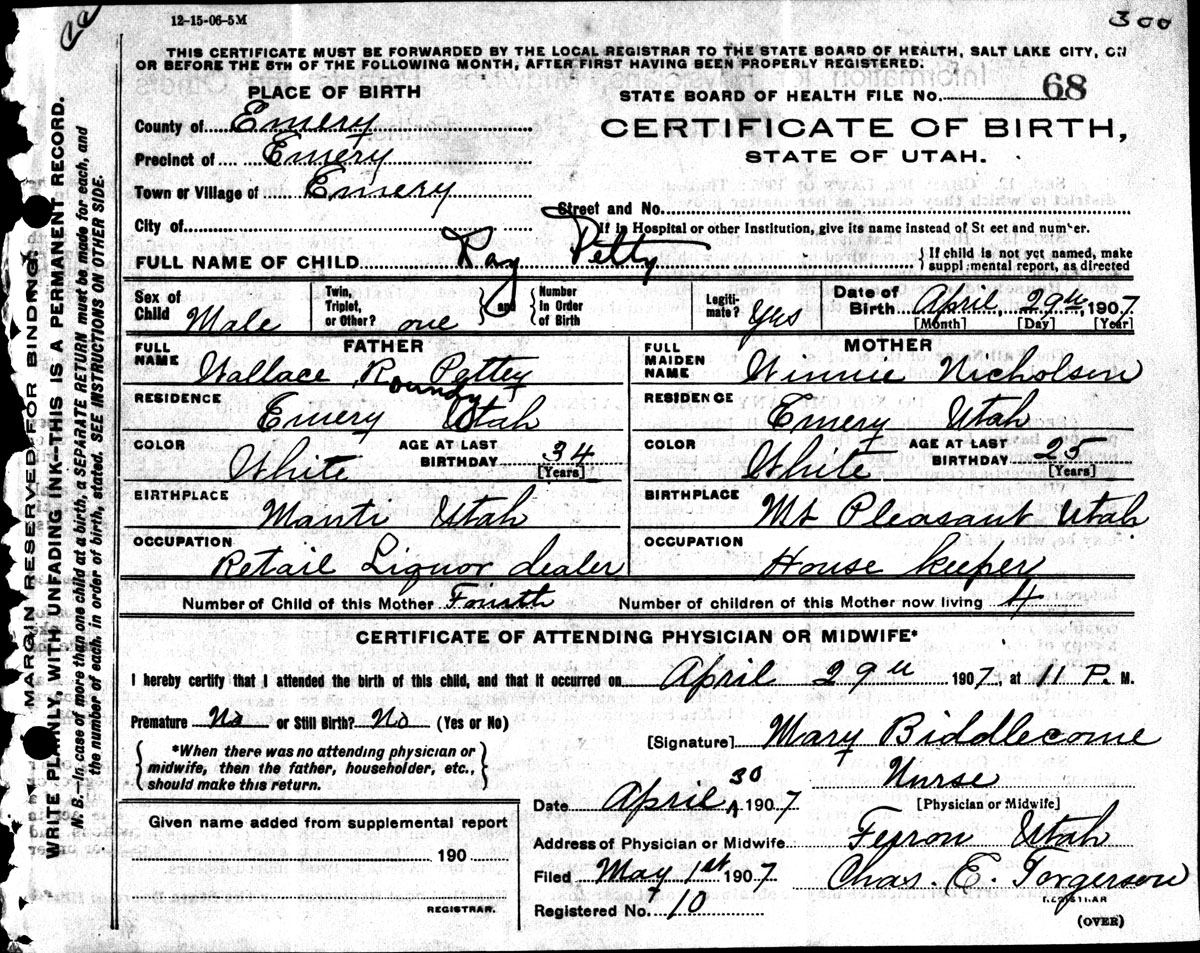 12-15-06-5M
300
THIS CERTIFICATE MUST BE FORWARDED BY THE LOCAL REGISTRAR TO THE STATE BOARD OF HEALTH, SALT LAKE CITY, ON
OR BEFORE THE 5TH OF THE FOLLOWING MONTH, AFTER FIRST HAVING BEEN PROPERLY REGISTERED.
MARGIN RESERVED FOR BINDING.
WRITE PLAINLY WITH UNFADING INK—THIS IS A PERMANENT RECORD.
N. B.—In case of more than one child at a birth, a SEPARATE RETURN must be made for each, and
the number of each, in order of birth, stated. SEE INSTRUCTIONS ON OTHER SIDE.
PLACE OF BIRTH
STATE BOARD OF HEALTH FILE No. 68
County of Emery
CERTIFICATE OF BIRTH,
Precinct of Emery
STATE OF UTAH.
Town or Village of Emery
Street and No.
City of
If in Hospital or other Institution, give its name instead of St eet and number.
FULL NAME OF CHILD Ray Petty
{ If child is not yet named, make
suppl mental report, as directed
Sex of Child Male
Twin, Triplet, or Other? one } and { Number in Order of Birth
Legiti- mate? Yes
Date of Birth April, 29th, 1907
[Month] [Day] [Year]
FATHER
MOTHER
FULL NAME Wallace Roundy Pettey
FULL MAIDEN NAME Winnie Nicholson
RESIDENCE Emery Utah
RESIDENCE Emery Utah
COLOR White AGE AT LAST BIRTHDAY 34 [Years]
COLOR White AGE AT LAST BIRTHDAY 25 [Years]
BIRTHPLACE Manti Utah
BIRTHPLACE Mt Pleasant Utah
OCCUPATION Retail Liquor dealer
OCCUPATION House keeper
Number of Child of this Mother Fourth Number of children of this Mother now living 4
CERTIFICATE OF ATTENDING PHYSICIAN OR MIDWIFE*
I hereby certify that I attended the birth of this child, and that it occurred on April 29th 1907, at 11 P. M.
Premature No or Still Birth? No (Yes or No)
{ *When there was no attending physician or
midwife, then the father, householder, etc.,
should make this return. }
[Signature] Mary Biddlecome
Nurse
Date April 30 1907 [Physician or Midwife]
Given name added from supplemental report
190
REGISTRAR.
Address of Physician or Midwife Ferron Utah
Filed May 1st 1907 Chas. E. Torgerson
REGISTRAR
Registered No. 10
(OVER)